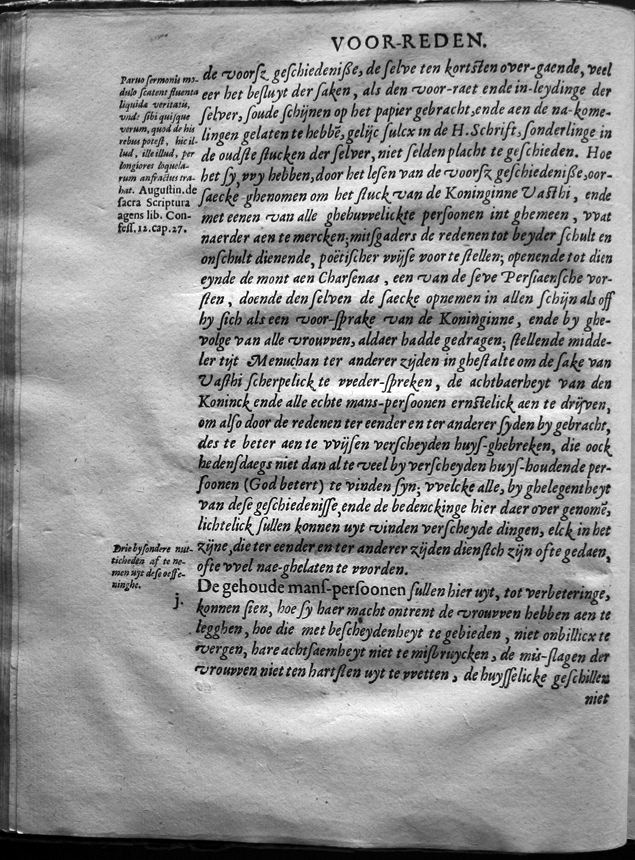 VOOR-REDEN.
Parvo sermonis mo-
dulo scatent fluenta
liquidæ veritatis,
unde sibi quisque
verum, quod de his
rebus potest, hic il-
lud, ille illud, per
longiores loquela-
rum anfractus tra-
hat. Augustin. de
sacra Scriptura
agens lib. Con-
fess. 12. cap. 27.
de voorsz geschiedeniße, de selve ten kortsten over-gaende, veel
eer het besluyt der saken, als den voor-raet ende in-leydinge der
selver, soude schijnen op het papier gebracht, ende aen de na-kome-
lingen gelaten te hebbē, gelijc sulcx in de H. Schrift, sonderlinge in
de oudste stucken der selver, niet selden placht te geschieden. Hoe
het sy, vvy hebben, door het lesen van de voorsz geschiedeniße, oor-
saecke ghenomen om het stuck van de Koninginne Vasthi, ende
met eenen van alle ghehuvvelickte persoonen int ghemeen, vvat
naerder aen te mercken; mitsgaders de redenen tot beyder schult en
onschult dienende, poëtischer vvijse voor te stellen; openende tot dien
eynde de mont aen Charsenas, een van de seve Persiaensche vor-
sten, doende den selven de saecke opnemen in allen schijn als off
hy sich als een voor-sprake van de Koninginne, ende by ghe-
volge van alle vrouvven, aldaer hadde gedragen; stellende midde-
ler tijt Menuchan ter anderer zijden in ghestalte om de sake van
Vasthi scherpelick te vveder-spreken, de achtbaerheyt van den
Koninck ende alle echte mans-persoonen ernstelick aen te drijven,
om also door de redenen ter eender en ter anderer syden by gebracht,
des te beter aen te vvijsen verscheyden huys-ghebreken, die oock
hedensdaegs niet dan al te veel by verscheyden huys-houdende per-
soonen (God betert) te vinden syn; vvelcke alle, by ghelegentheyt
van dese geschiedenisse, ende de bedenckinge hier daer over genomē,
lichtelick sullen konnen uyt vinden verscheyde dingen, elck in het
zijne, die ter eender en ter anderer zijden dienstich zijn ofte gedaen,
ofte vvel nae-ghelaten te vvorden.
Drie bysondere nut-
ticheden af te ne-
men uyt dese oeffe-
ninghe.
j.
De gehoude mans-persoonen sullen hier uyt, tot verbeteringe,
konnen sien, hoe sy haer macht ontrent de vrouvven hebben aen te
legghen, hoe die met bescheydenheyt te gebieden, niet onbillicx te
vergen, hare achtsaemheyt niet te misbruycken, de mis-slagen der
vrouvven niet ten hartsten uyt te vvetten, de huysselicke geschillen
niet